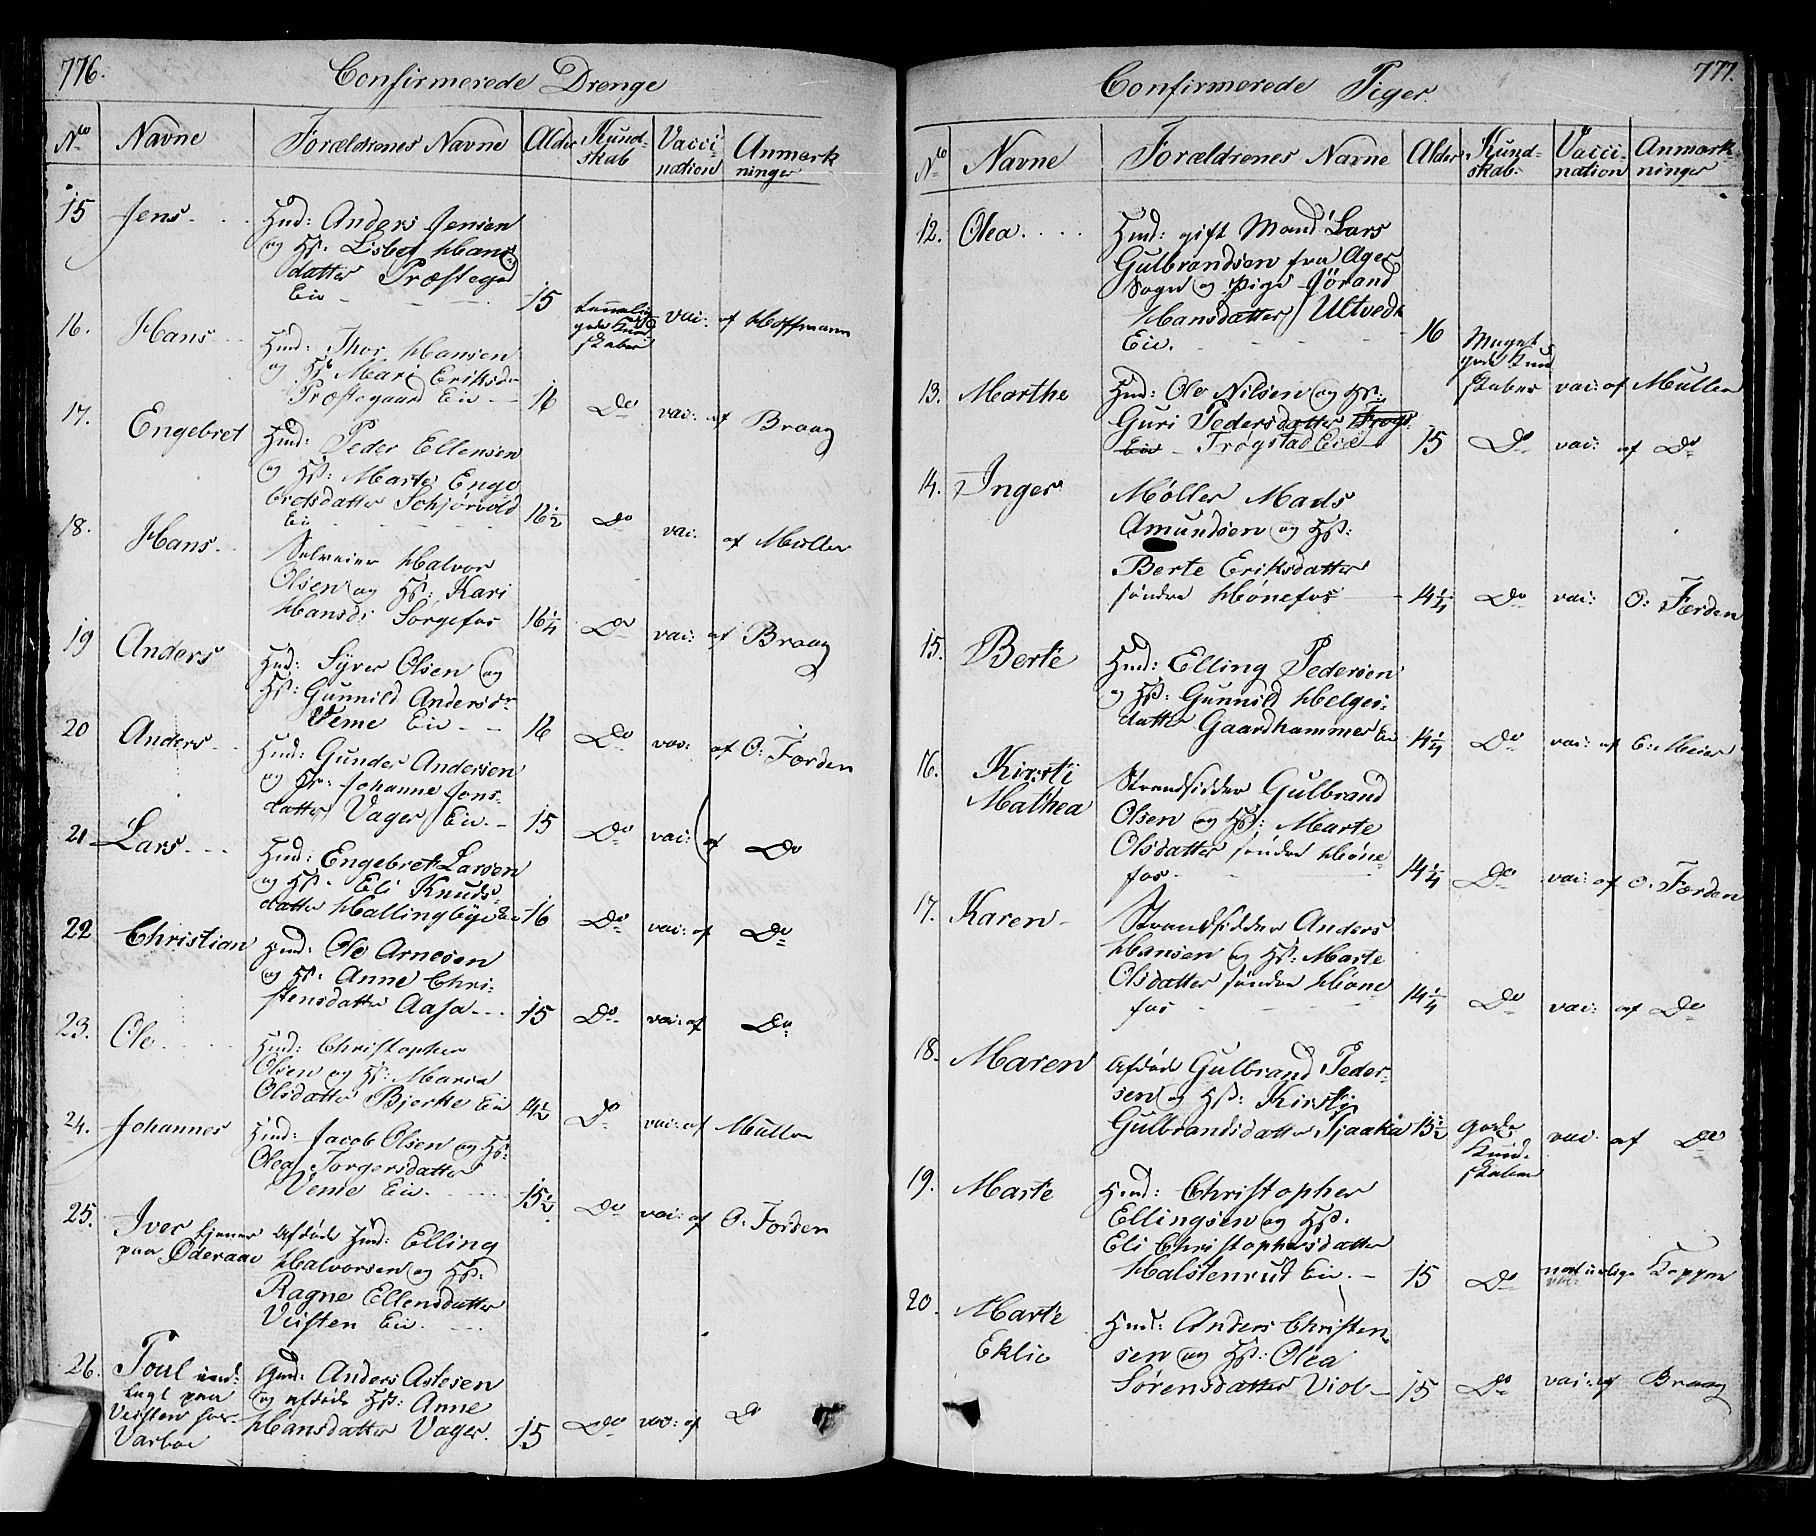 776.
Confirmerede Drenge
No Navne Forældrenes Navne Alder Kund-
skab Vacci-
nation Anmærk
ninger
15 Jens. Huusmd: Anders Jensen
og Hst. Lisbet Hans
datter Præstegd
Eie 15 temmelig
gode Kund
skaber vac: af Hoffmann
16. Hans Huusmd: Thor Hansen
og Hst Mari Eriksdr
Præstegaard Eie 16 Do vac: af Braag
17. Engebret Huusmd: Peder Ellensen
og Hst: Marte Enge
bretsdatter Schjørvold
Ei 16½ Do vac. af Müller
18. Hans. Selveier Halvor
Olsen og Hst: Kari
Hansd: Sørgefos 16¼ Do vac: af Braag
19 Anders Hmd: Syver Olsen og
Hst: Gunnild Andersdr
Veme Eie 16 Do vac: af O:Førden
20 Anders Hmd: Gunder Andersen
og Hst: Johanne Jons-
datter Vager Eie. 15 Do vac: af Do
21 Lars Hmd: Engebret Larsen
og Hst. Eli Knuds
datter Hallingbye Eie 16 Do vac: af Do
22 Christian Hmd: Ole Arnesen
og Hst. Anne Chri-
stensdatter Aasa 15 Do vac: af Do
23. Ole Hmd: Christopher
Olsen og Hst: Maria
Olsdatter Bjerke Eie 14½ Do vac: af Müller
24. Johannes Hmd: Jacob Olsen og Hst:
Olea Torgersdatter
Veme Eie. 15½ Do vac: af O. Førden
25. Iver tjener
paa Oderaae Afdøde Hmd: Elling
Halvorsen og Hst:
Ragne Ellensdatter
Veisten Eie.
26. Poul ind-
lagt paa
Veisten Hmd: Anders Aslesen
og afdøde Hst: Anne
Hansdatter Vager. 15 Do vac: af Do
777.
Confirmerede Piger.
No Navne Forældrenes Navne Alder Kund-
skab. Vacci-
nation Anmærk-
ninger
12. Olea Hmd: gift Mand Lars
Gulbrandsen fra Ager
Sogn og Pige Jørand
Hansdatter Ultvedt
Eie. 16 Meget
gode Kund
skaber vac: af Müller
13. Marthe Hmd: Ole Nilsen og Hst:
Guri Pedersdatter Frogs.
Eie Frogstad Eie 15 Do vac: af Do
14. Inger Møller Mads
Amundsen og Hst:
Berte Eriksdatter
søndre Hønefos 14¼ Do vac: O: Førden
15. Berte Hmd: Elling Pedersen
og Hst: Gunnild Helges-
datter Gaardhammer Eie 14¼ Do vac: af C: Meier
16. Kirsti
Mathea Strandsidder Gulbrand
Olsen og Hst: Marte
Olsdatter søndre Høne
fos 14¼ Do vac: af O. Førden
17. Karen Strandsidder Anders
Hansen og Hst: Marte
Olsdatter søndre Høne
fos 14¼ Do vac: af Do
18. Maren Afdøde Gulbrand Peder-
sen og Hst: Kirsti
Gulbrandsdatter Tjaaka 15½ gode
Kund-
skaber vac. af Do
19. Marte Hmd: Christopher
Ellingsen og Hst.
Eli Christophersdatter
Halstenrud Eie. 15 Do naturlige Kopper
20. Marte
Eklie Hmd: Anders Christen
sen og Hst: Olea
Sørensdatter Viol 15 Do vac: af Braag